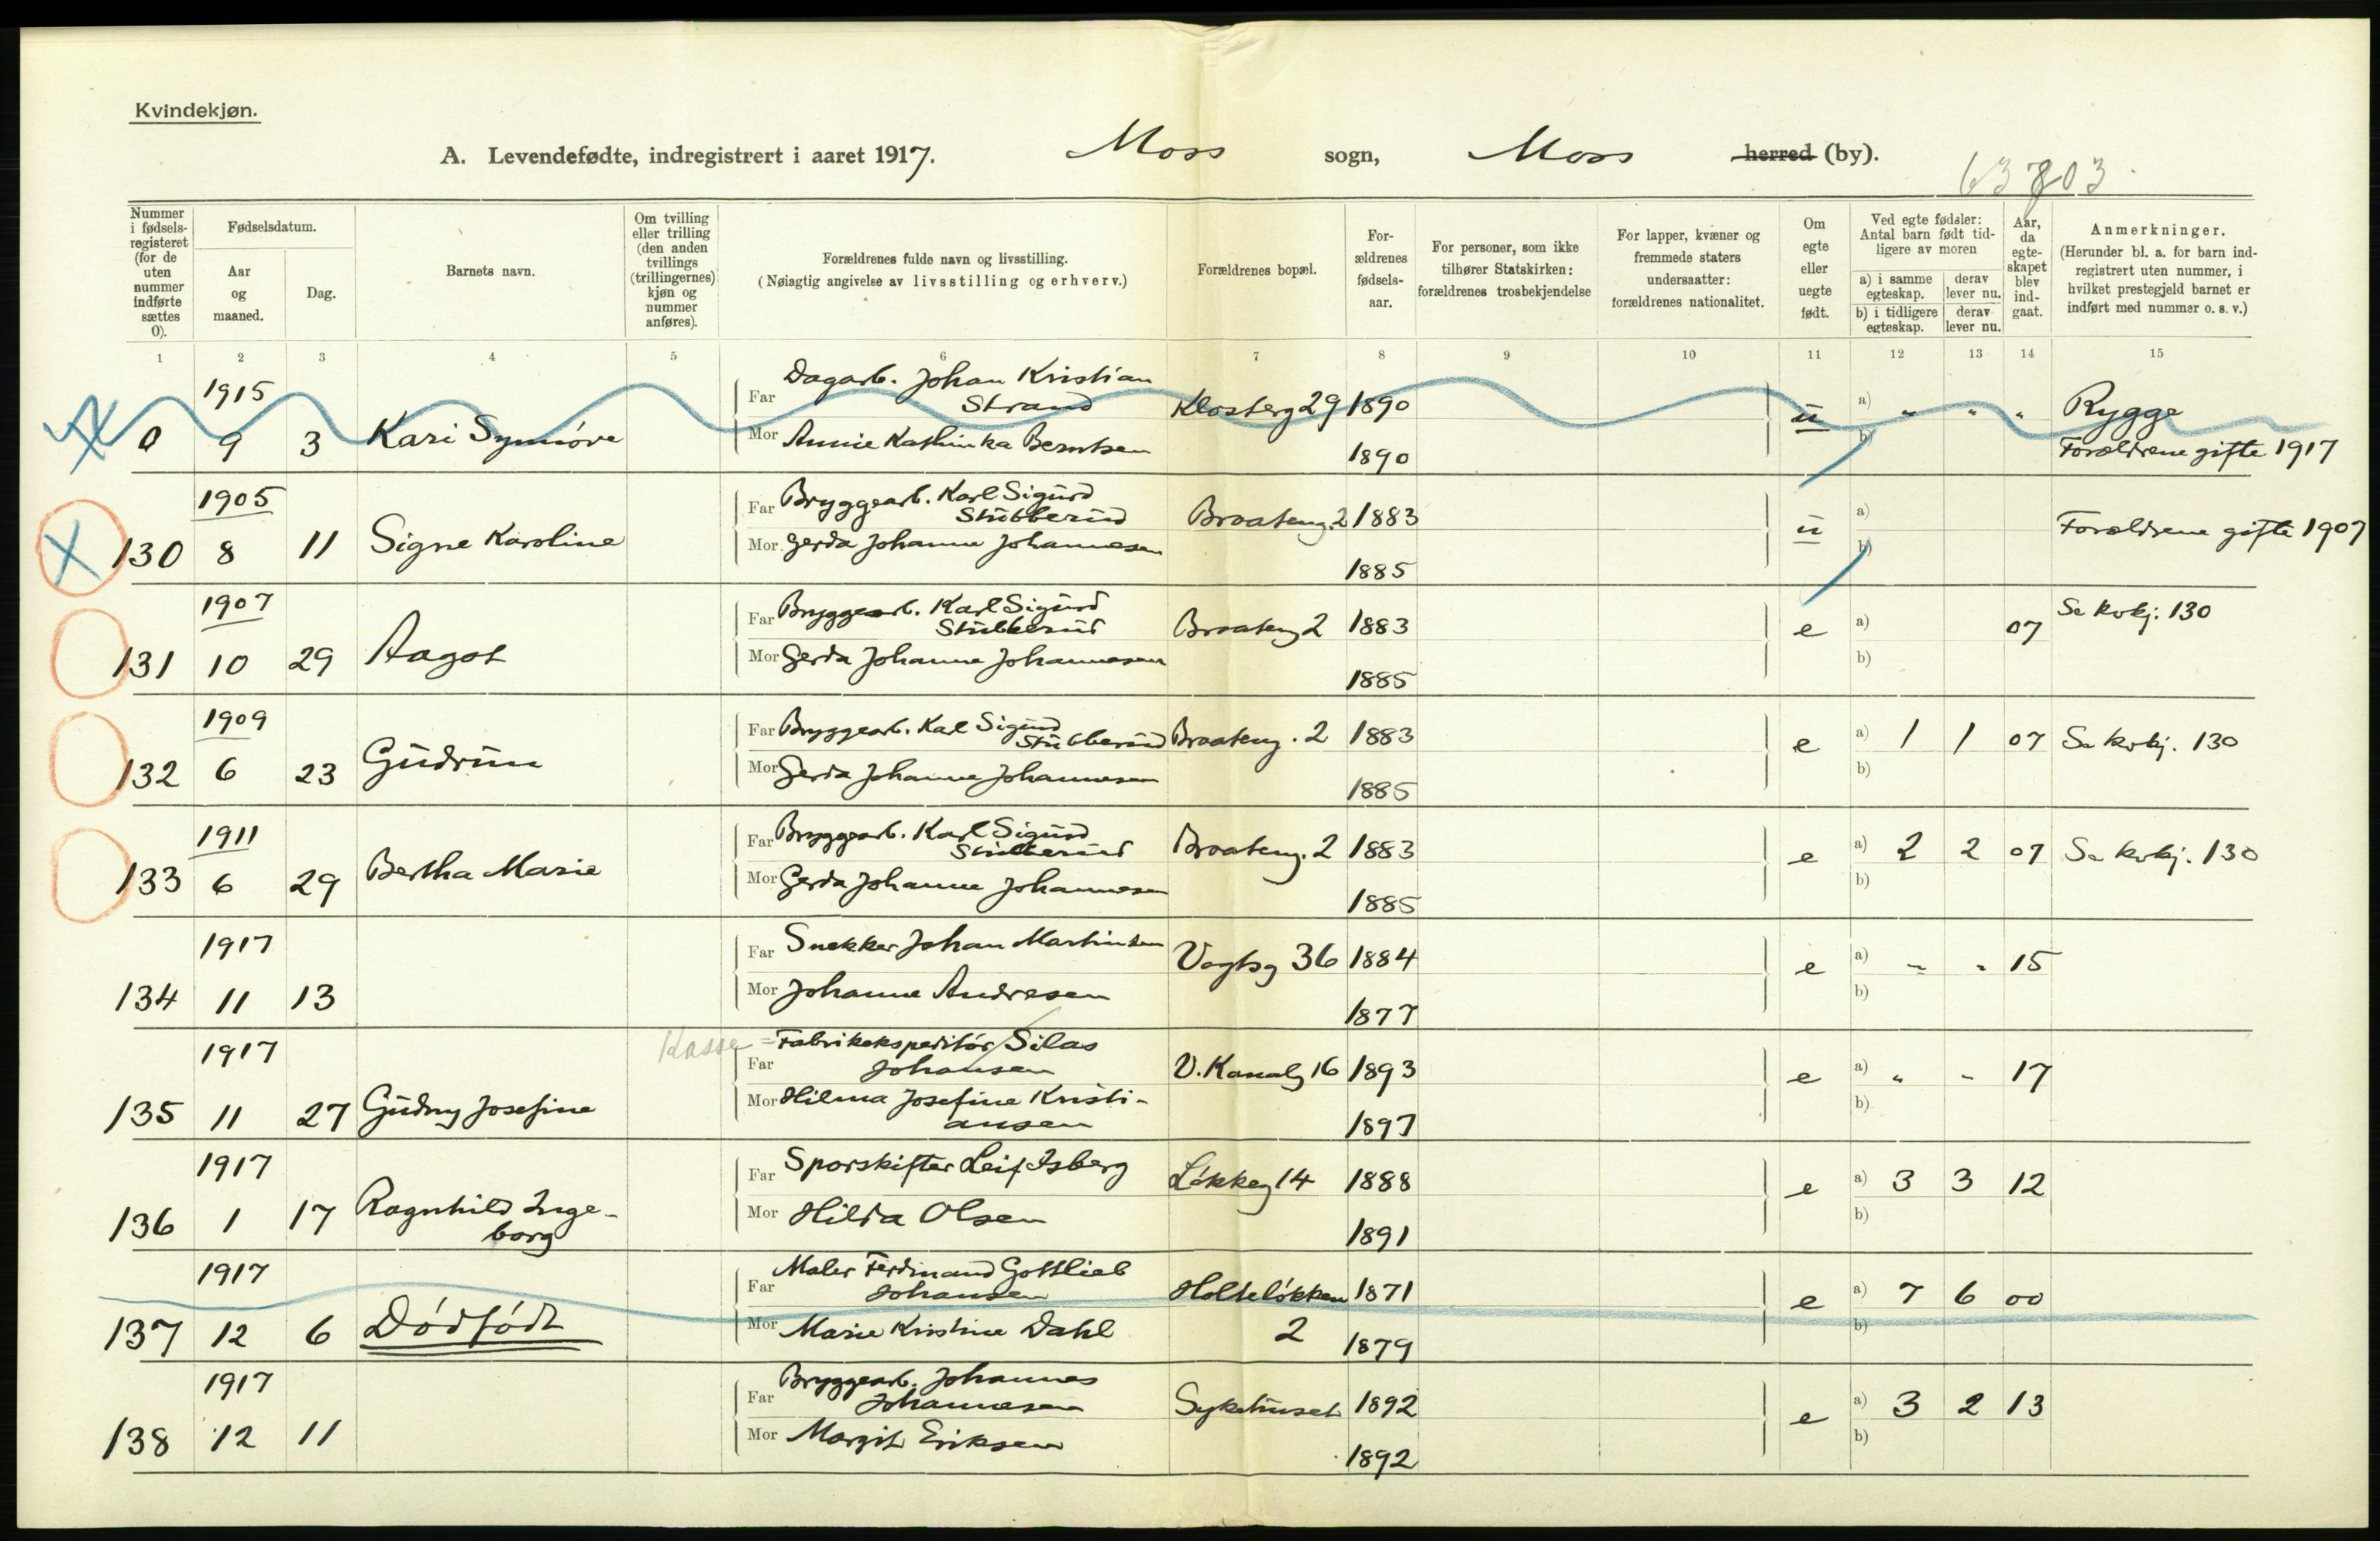 Kvindekjøn.
A. Levendefødte, indregistrert i aaret 1917. Moss sogn, Moss herred (by).
63803
Nummer i fødselsregisteret (for de uten nummer indførte sættes 0).
Fødselsdatum.
Aar og maaned.
Dag.
Barnets navn.
Om tvilling eller trilling (den anden tvillings (trillingernes) kjøn og nummer anføres).
Forældrenes fulde navn og livsstilling.
(Nøiagtig angivelse av livsstilling og erhverv.)
Forældrenes bopæl.
Forældrenes fødselsaar.
For personer, som ikke tilhører Statskirken: forældrenes trosbekjendelse
For lapper, kvæner og fremmede staters undersaatter: forældrenes nationalitet.
Om egte eller uegte født.
Ved egte fødsler: Antal barn født tidligere av moren
a) i samme egteskap. derav lever nu.
b) i tidligere egteskap. derav lever nu.
Aar, da egteskapet blev indgaat.
Anmerkninger.
(Herunder bl. a. for barn indregistrert uten nummer, i hvilket prestegjeld barnet er indført med nummer o. s. v.)
1 2 3 4 5 6 7 8 9 10 11 12 13 14 15
0 1915 9 3 Kari Synnøve
Far Dagarb. Johan Kristian Strand Klosterg 29 1890 u a) " " " Rygge
Mor Annie Kathinka Berntsen 1890 b) Forældrene gifte 1917
130 1905 8 11 Signe Karoline
Far Bryggearb. Karl Sigurd Stubberud Braateng. 2 1883 u a) Forældrene gifte 1907
Mor Gerda Johanne Johannesen 1885 b)
131 1907 10 29 Aagot
Far Bryggearb. Karl Sigurd Stubberud Braateng 2 1883 e a) 07 Se kvkj. 130
Mor Gerda Johanne Johannesen 1885 b)
132 1909 6 23 Gudrun
Far Bryggearb. Karl Sigurd Stubberud Braateng. 2 1883 e a) 1 1 07 Se kvkj. 130
Mor Gerda Johanne Johannesen 1885 b)
133 1911 6 29 Bertha Marie
Far Bryggearb. Karl Sigurd Stubberud Braateng. 2 1883 e a) 2 2 07 Se kvkj. 130
Mor Gerda Johanne Johannesen 1885 b)
134 1917 11 13
Far Snekker Johan Martinsen Vogtsg 36 1884 e a) " " 15
Mor Johanne Andresen 1877 b)
135 1917 11 27 Gudny Josefine
Kasse = Far Fabrikekspeditør Silas Johansen V. Kanalg 16 1893 e a) " " 17
Mor Hilma Josefine Kristiansen 1897 b)
136 1917 1 17 Ragnhild Ingeborg
Far Sporskifter Leif Isberg Løkkeg 14 1888 e a) 3 3 12
Mor Hilda Olsen 1891 b)
137 1917 12 6 Dødfødt
Far Maler Ferdinand Gottlieb Johansen Holteløkken 2 1871 e a) 7 6 00
Mor Marie Kristine Dahl 1879 b)
138 1917 12 11
Far Bryggearb. Johannes Johannesen Sykehuset 1892 e a) 3 2 13
Mor Margit Eriksen 1892 b)